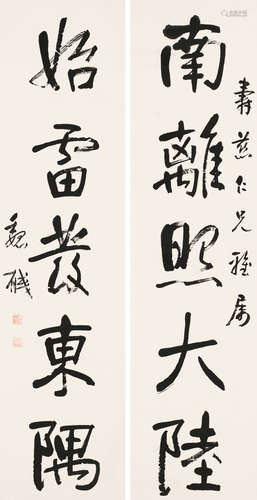 壽慈仁兄雅属
南離照大陸
始雷發東隅
魏戫